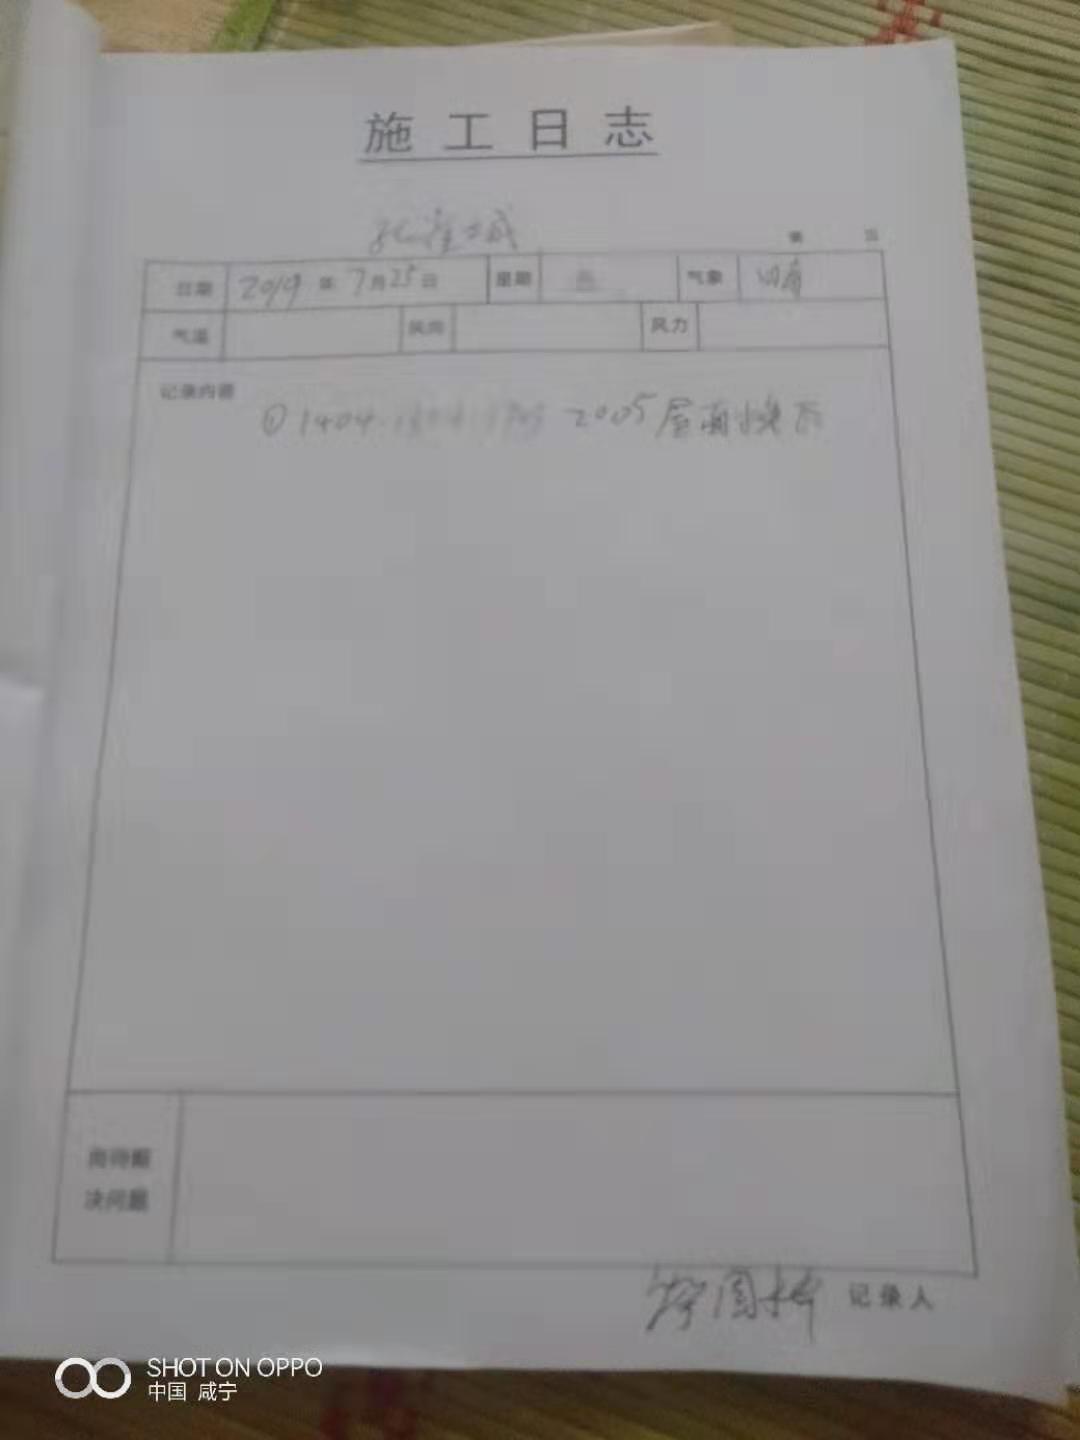 施工日志
孔雀城
第 页
日期 2019 年 7月25日 星期 气象 晴
气温 风向 风力
记录内容
① 1404. 2005屋面换瓦
尚待解
决问题
国桥 记录人
SHOT ON OPPO
中国 咸宁